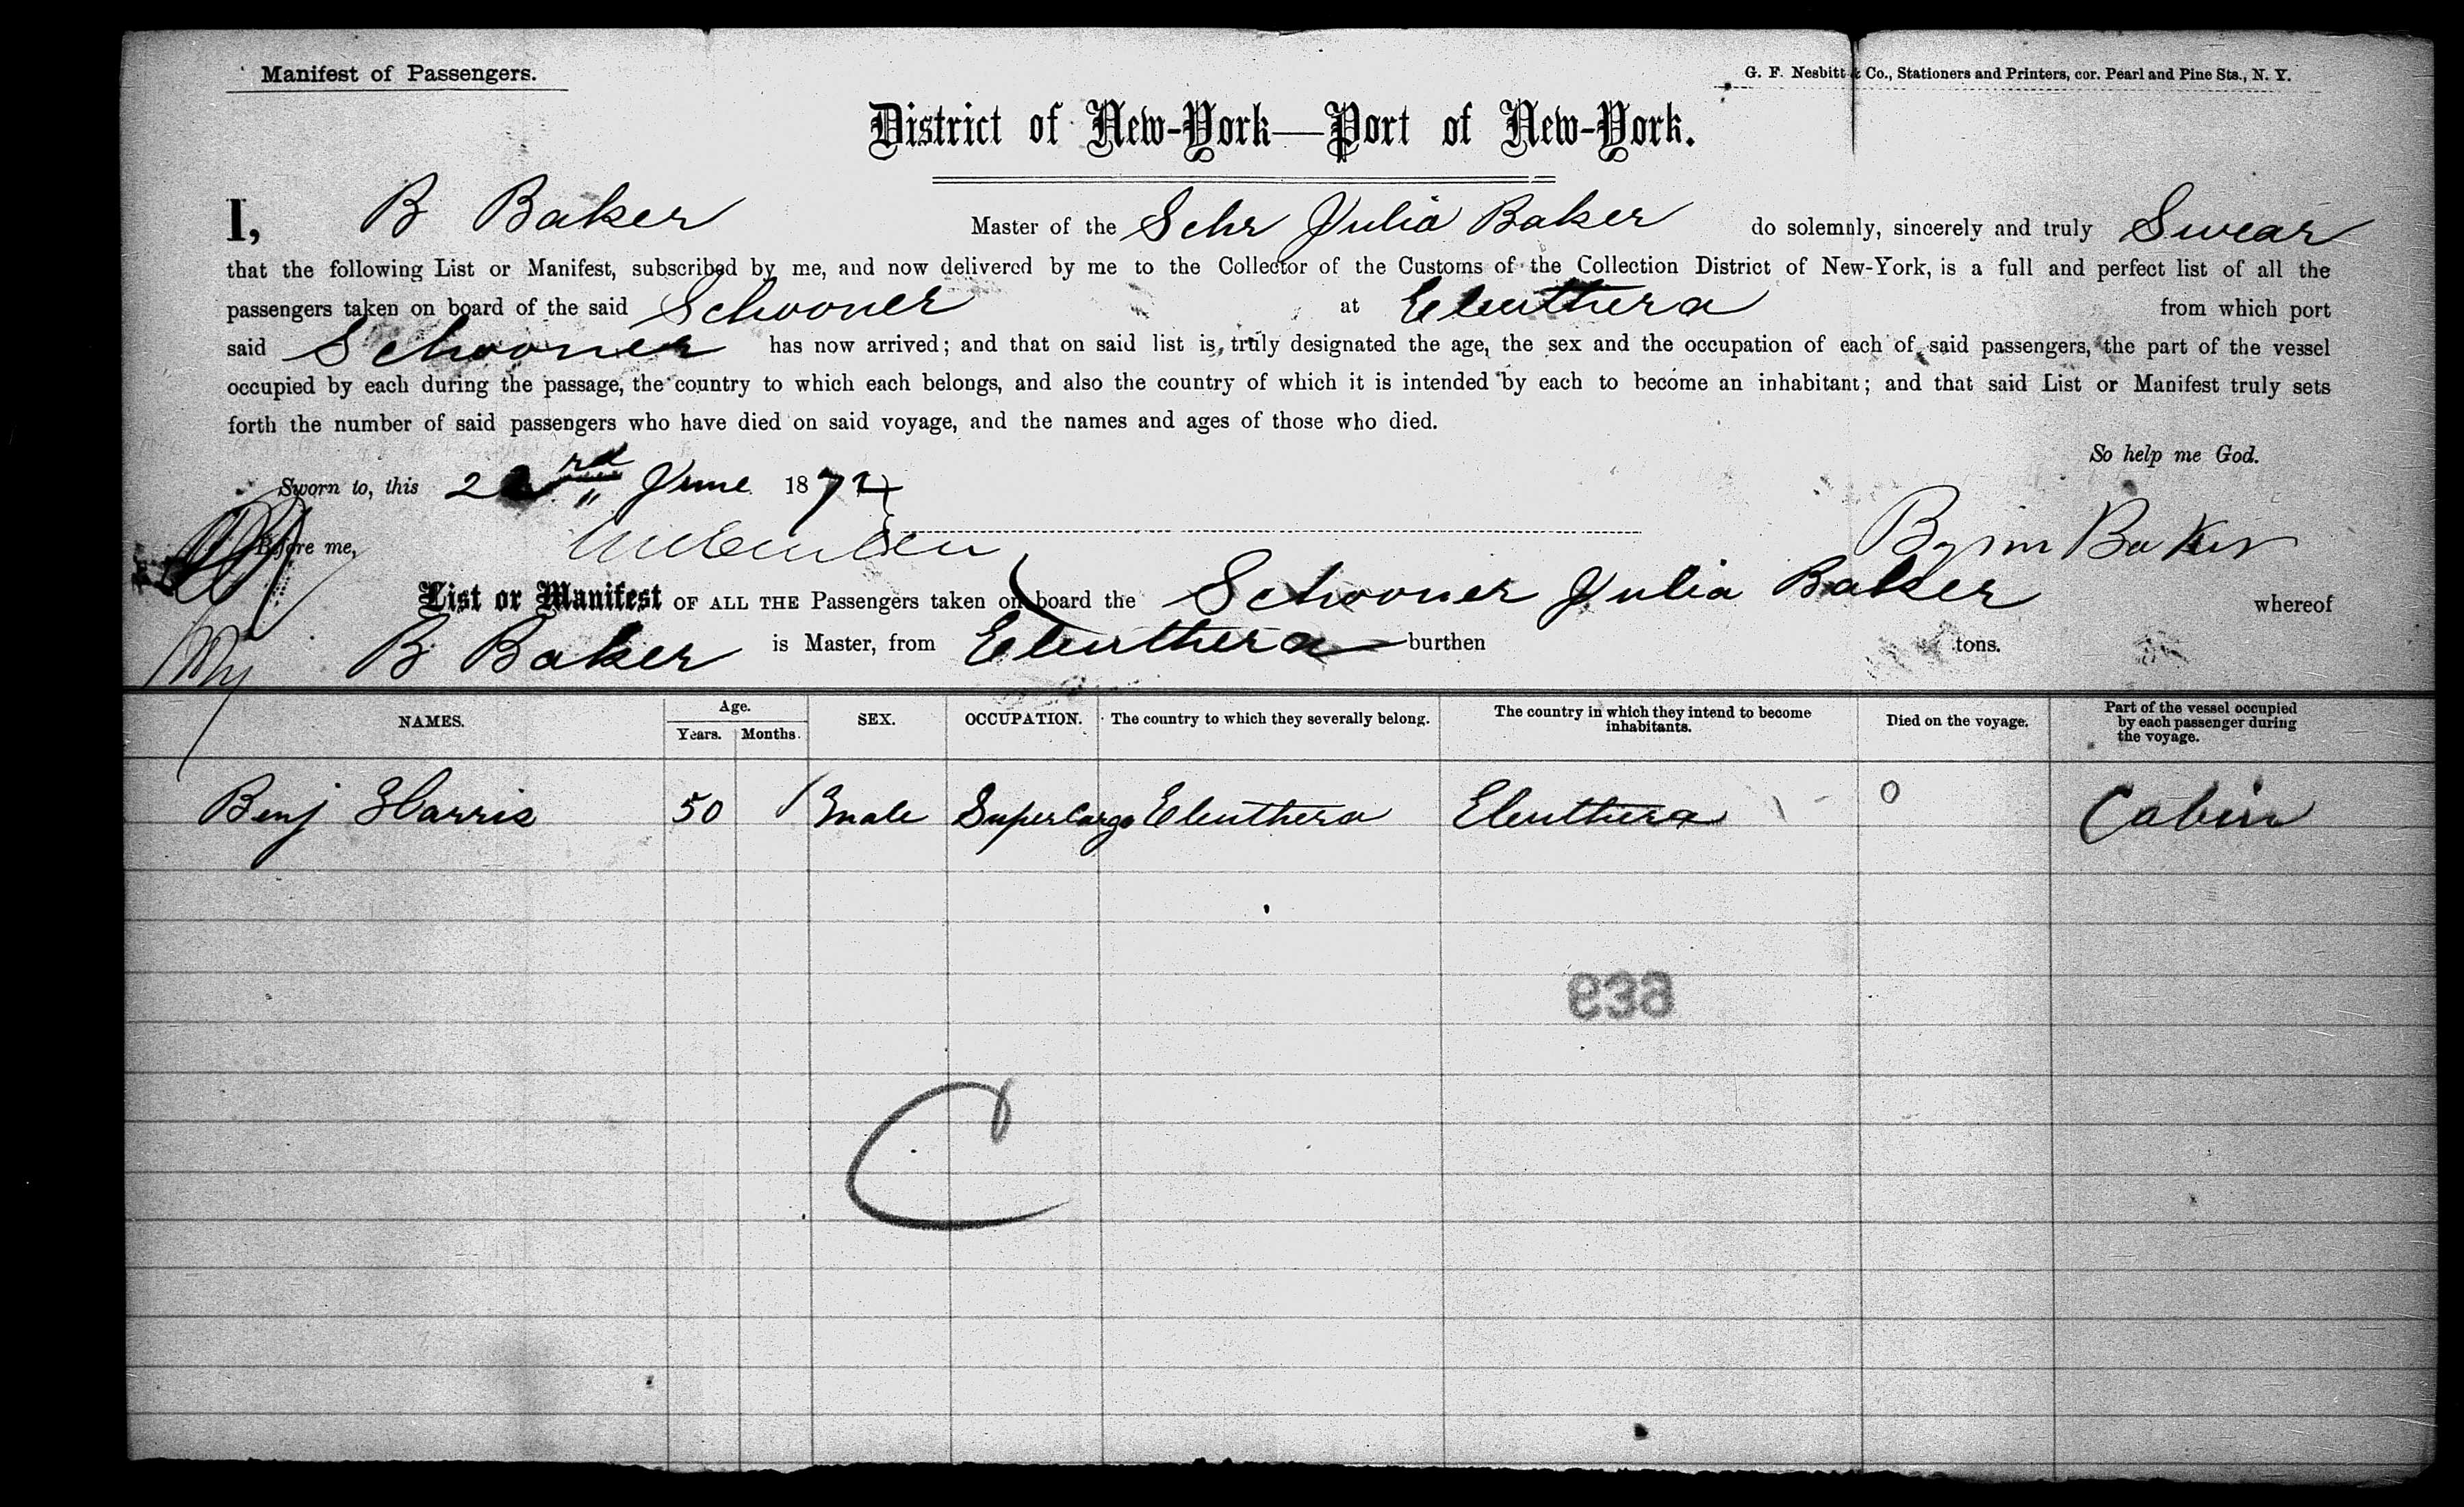 Manifest of Passengers.
G. F. Nesbitt & Co., Stationers and Printers, cor. Pearl and Pine Sts., N. Y.
District of New-York—Port of New-York.
I, B Baker Master of the Schr Julia Baker do solemnly, sincerely and truly Swear
that the following List or Manifest, subscribed by me, and now delivered by me to the Collector of the Customs of the Collection District of New-York, is a full and perfect list of all the
passengers taken on board of the said Schooner at Eleuthera from which port
said Schooner has now arrived; and that on said list is truly designated the age, the sex and the occupation of each of said passengers, the part of the vessel
occupied by each during the passage, the country to which each belongs, and also the country of which it is intended by each to become an inhabitant; and that said List or Manifest truly sets
forth the number of said passengers who have died on said voyage, and the names and ages of those who died.
So help me God.
Sworn to, this June 1872
Before me,
Baker
List or Manifest OF ALL THE Passengers taken on board the Schooner Julia Baker whereof
B Baker is Master, from Eleuthera burthen tons.
NAMES. Age. Years. Months. SEX. OCCUPATION. The country to which they severally belong. The country in which they intend to become inhabitants. Died on the voyage. Part of the vessel occupied by each passenger during the voyage.
Benj Harris 50 male SuperCargo Eleuthera Eleuthera 0 Cabin
C